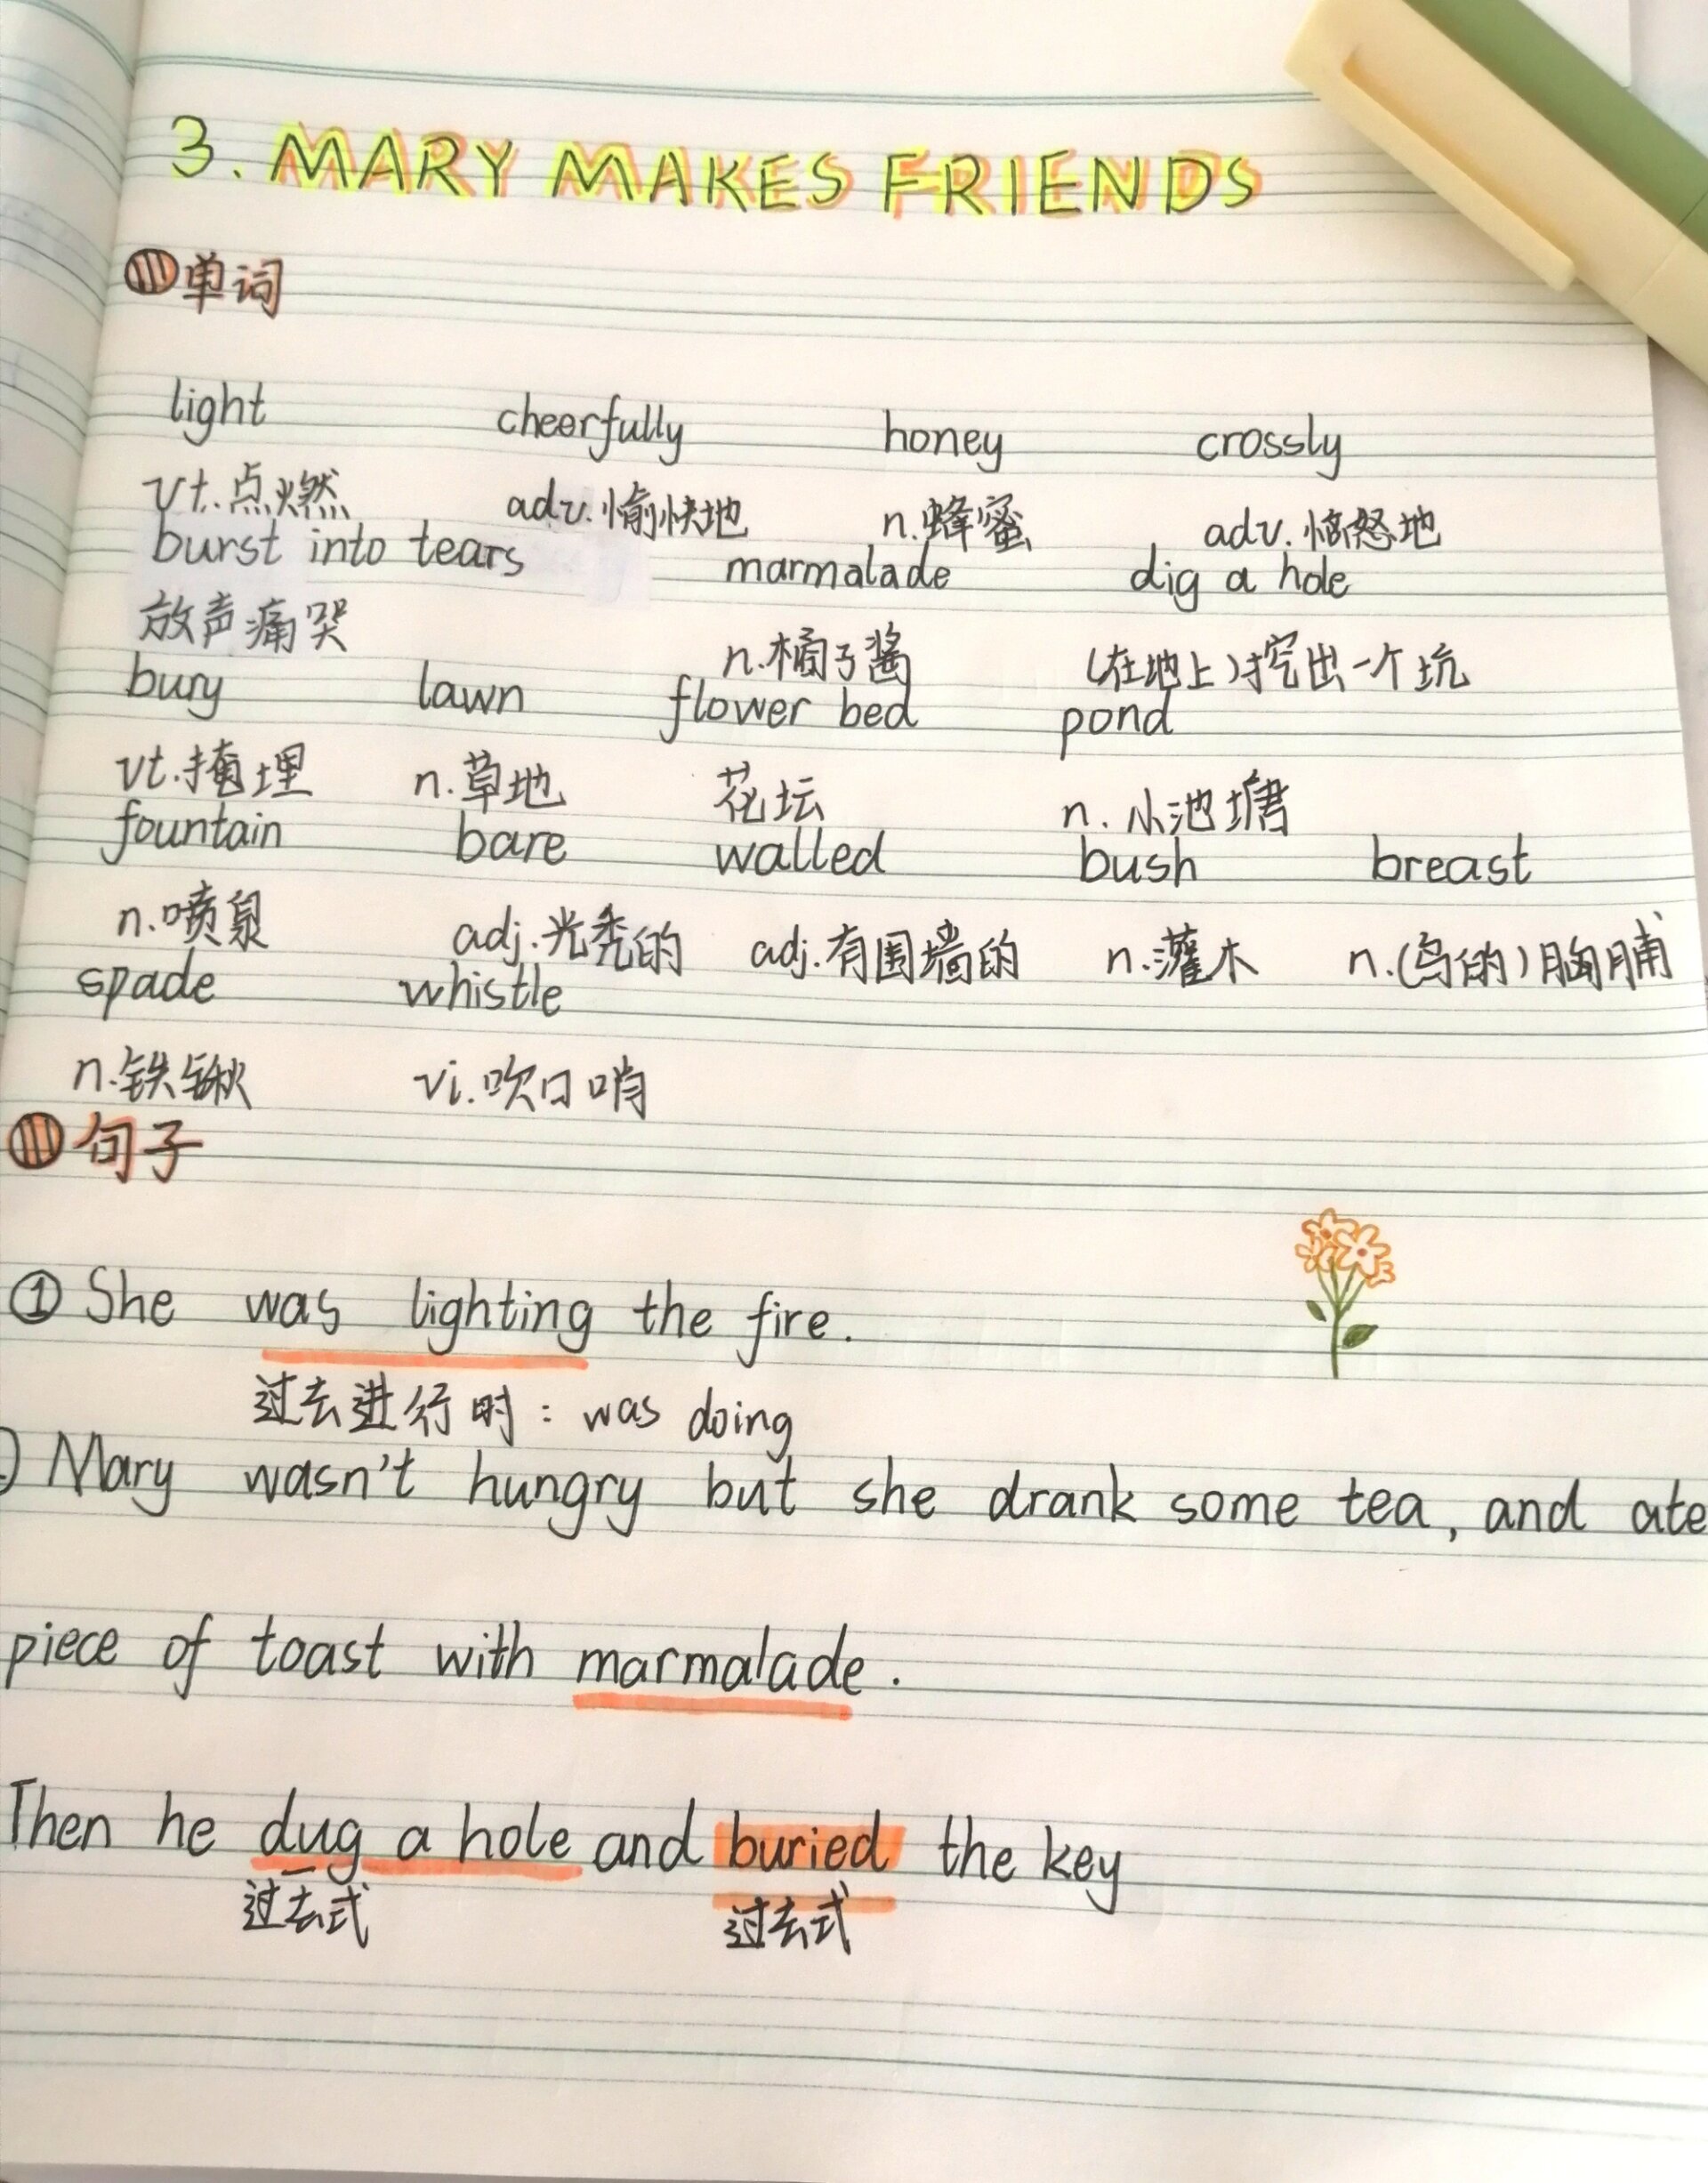 3. MARY MAKES FRIENDS
单词
light cheerfully honey crossly
vt.点燃 adv.愉快地 n.蜂蜜 adv.愤怒地
burst into tears marmalade dig a hole
放声痛哭 n.橘子酱 (在地上)挖出一个坑
bury lawn flower bed pond
vt.掩埋 n.草地 花坛 n.小池塘
fountain bare walled bush breast
n.喷泉 adj.光秃的 adj.有围墙的 n.灌木 n.(鸟的)胸脯
spade whistle
n.铁锹 vi.吹口哨
句子
① She was lighting the fire.
过去进行时: was doing
Mary wasn't hungry but she drank some tea, and ate
piece of toast with marmalade.
Then he dug a hole and buried the key
过去式 过去式